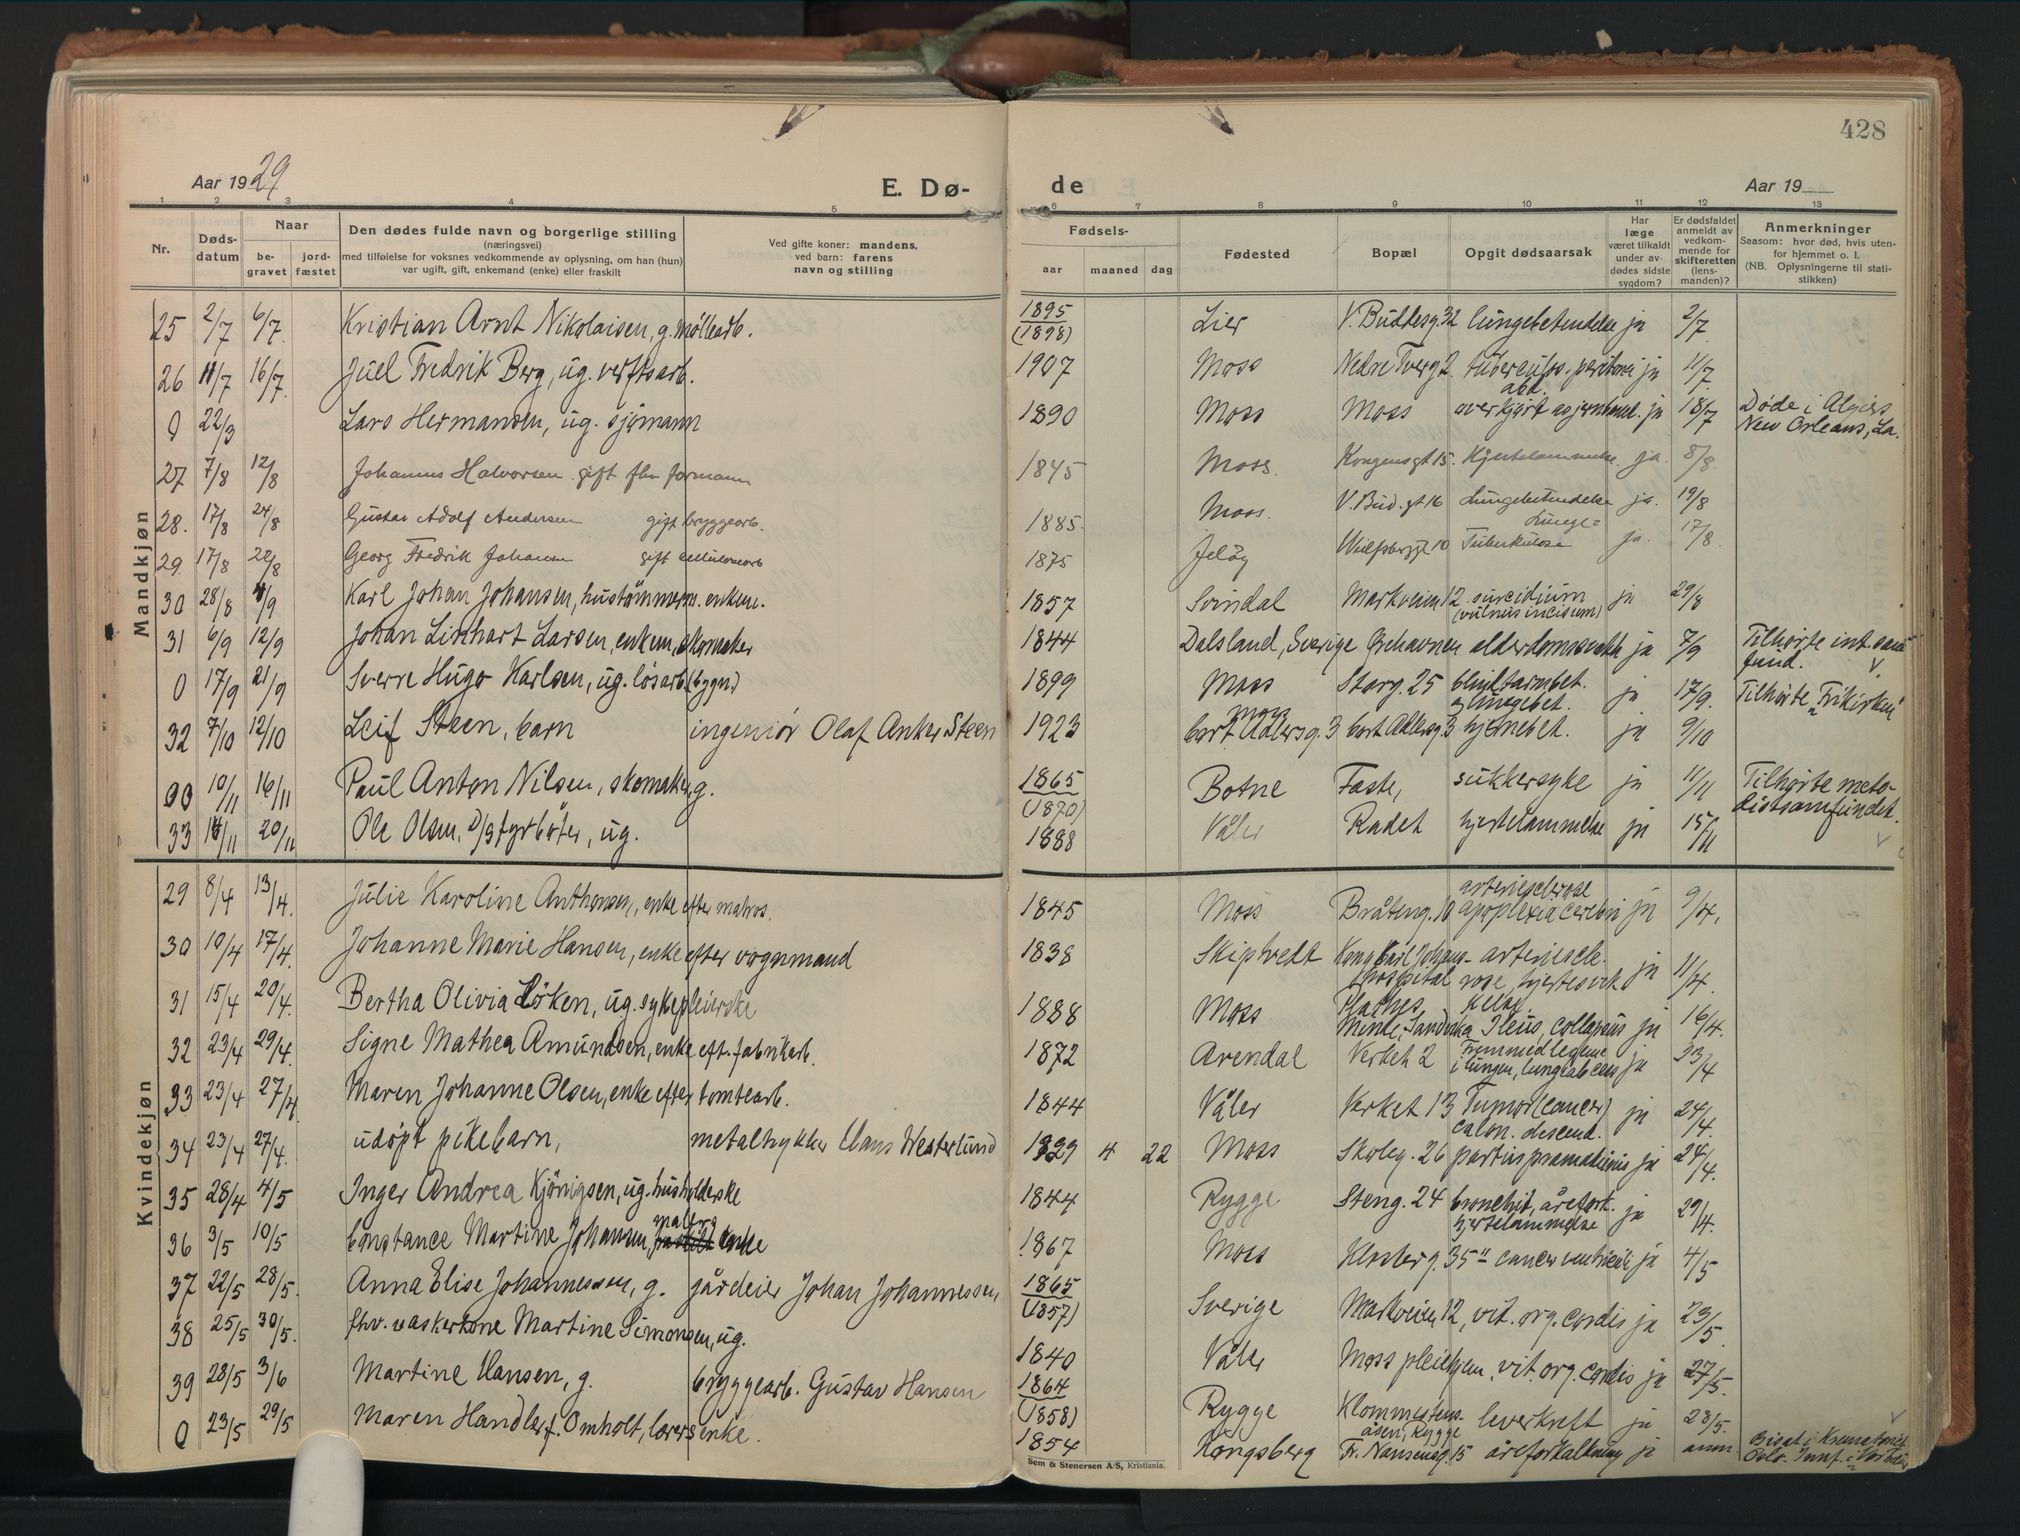 428
Aar 1929 E. Dø- de Aar 19
1 2 3 4 5 6 7 8 9 10 11 12 13
Nr. Døds-datum Naar be-gravet jord-fæstet Den dødes fulde navn og borgerlige stilling (næringsvei) med tilføielse for voksnes vedkommende av oplysning, om han (hun) var ugift, gift, enkemand (enke) eller fraskilt Ved gifte koner: mandens, ved barn: farens navn og stilling Fødsels- aar maaned dag Fødested Bopæl Opgit dødsaarsak Har læge været tilkaldt under av-dødes sidste sygdom? Er dødsfaldet anmeldt av vedkom-mende for skifteretten (lens-manden)? Anmerkninger Saasom: hvor død, hvis uten-for hjemmet o. l. (NB. Oplysningerne til stati-stikken)
Mandkjøn
25 2/7 6/7 Kristian Arnt Nikolaisen, g. møllearb. 1895 (1898) Lier V. Buddesg. 32 lungebetendelse ja 2/7
26 11/7 16/7 Juel Fredrik Berg, ug. verftsarb. 1907 Moss Nedre Tverg 2 tuberculos. ja 11/7
0 22/3 Lars Hermansen, ug. sjømann 1890 Moss Moss overkjørt ja 18/7 Døde i Algiers New Orleans, La.
27 7/8 12/8 Johannes Halvorsen gift fhv. formann 1845 Moss. Kongensgt 15. Hjertelammelse ja. 8/8
28. 17/8 24/8 Gustav Adolf Andersen gift bryggearb. 1885. Moss. V. Bud. gt 16 Lungebetendelse ja. 19/8
29. 17/8 22/8 Georg Fredrik Johansen gift 1875 Jeløy 10 Lunge= Tuberkulose ja. 17/8
30 28/8 4/9 Karl Johan Johansen, hustømmerm. enkem. 1857 Svindal Markveien 12 suicidium (vulnus incisum) ja 29/8
31 6/9 12/9 Johan Linhart Larsen, enkem, skomaker 1844 Dalsland, Sverige Grehavnen alderdomssvakh ja 7/9 Tilhørte int. samfund.
0 17/9 21/9 Sverre Hugo Karlsen, ug. løsarb (bygn.) 1899 Moss Storg. 25 blindtarmbet. og lungebet. ja 17/9. Tilhørte "Frikirken"
32 7/10 12/10 Leif Steen, barn ingeniør Olaf Anker Steen 1923 Moss Cort Adlersg. 3 Cort Adlersg. 3 hjernebet. ja 9/10
00 10/11 16/11 Paul Anton Nilsen, skomaker, g. 1865 (1870) Botne Faste, sukkersyke ja 11/11 Tilhørte metodistsamfundet.
33 14/11 20/11 Ole Olsen, D/S fyrbøter, ug. 1888 Våler Rådet hjertelammelse ja 15/11
Kvindekjøn
29 8/4 13/4. Julie Karoline Anthonsen, enke efter matros. 1845 Moss Bråteng. 10 arteriesclerose apoplexia cerebri ja 9/4.
30 10/4 17/4. Johanne Marie Hansen, enke efter vognmand 1838 Skiptvedt Kong Carl Johans- hospital arteriesclerose, hjertesvekkelse ja 11/4.
31 15/4 20/4. Bertha Olivia Løken, ug. sykepleierske 1888 Moss Plathes Minde, Sandvika Ileus, collapsus ja 16/4.
32 23/4 29/4. Signe Mathea Amundsen, enke eft. fabrikarb. 1872 Arendal Verket 2 Fremmedlegeme i lungen, lungeabces ja 23/4
33 23/4 27/4. Maren Johanne Olsen, enke efter tomtearb. 1844 Våler Verket 13 Tumor (cancer) colon. descend. ja 24/4.
34 23/4 27/4. udøpt pikebarn, metaltrykker Hans Westerlund 1929 4 22 Moss Skoleg. 26 partus præmaturus ja 24/4.
35 28/4 4/5 Inger Andrea Kjönigsen, ug. husholderske 1844 Rygge Steng. 24 bronchit, årefork. hjertelammelse ja 29/4.
36 3/5 10/5 Constance Martine Johansen, malers enke 1867 Moss Klosterg. 35" cancer ventriculi ja 4/5
37 22/5 28/5. Anna Elise Johannessen, g. gårdeier Johan Johannessen, 1865 (1857) Sverige Markveien 12, vit. org. cordis ja 23/5.
38 25/5 30/5. fhv. vaskerkone Martine Simonsen, ug. 1840 Våler Moss pleiehjem, vit. org. cordis ja 27/5.
39 28/5 3/6 Martine Hansen, g. bryggearb. Gustav Hansen 1864 (1858) Rygge Klommestensåsen, Rygge leverkreft ja 28/5.
0 23/5 29/5 Maren Handler f. Omholt, lærers enke. 1854 Kongsberg Fr. Nansensg. 15 åreforkalkning ja anm. Bisat i Krematoriet Oslo.
Sem & Stenersen A/S, Kristiania.